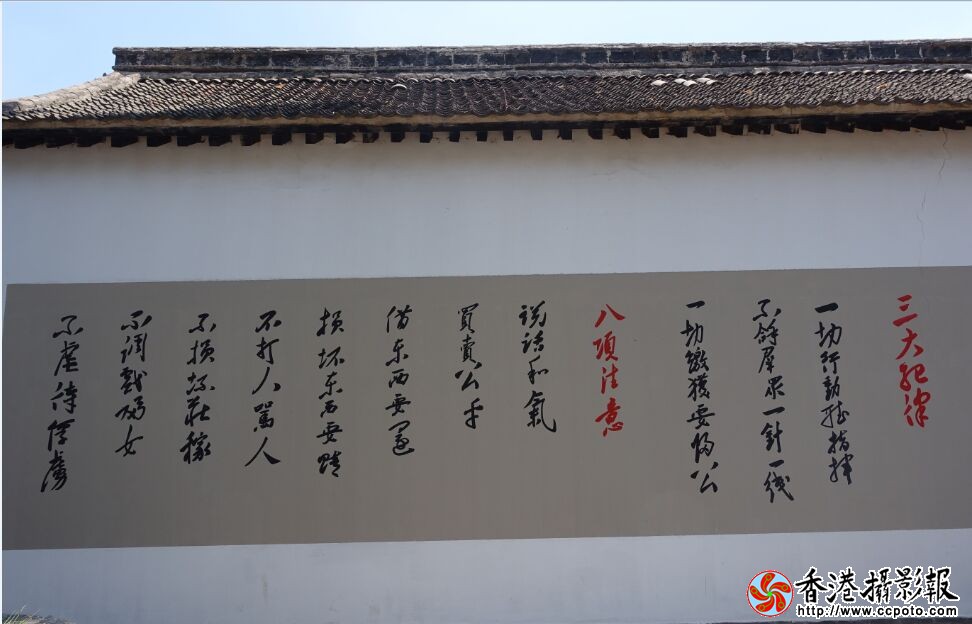 三大紀律
一切行動聽指揮
不拿羣眾一針一线
一切繳獲要归公
八項注意
说话和氣
買賣公平
借东西要還
損坏东西要赔
不打人罵人
不損坏莊稼
不调戲妇女
不虐待俘虜
香港攝影報
http://www.ccpoto.com/